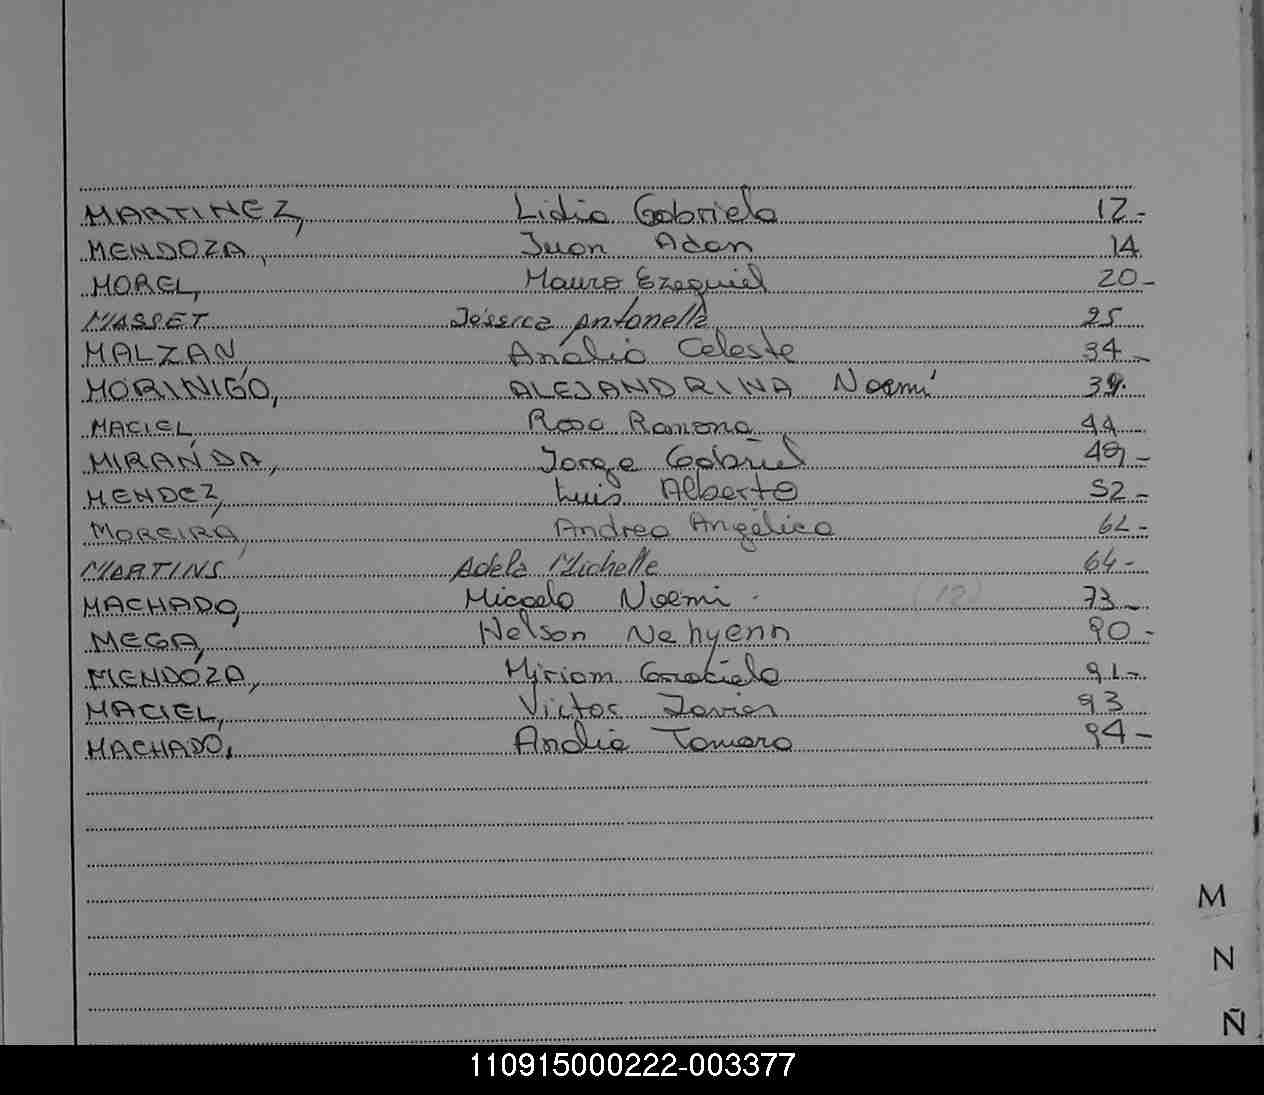 MARTINEZ, Lidia Gabriela 12-
MENDOZA, Juan Adan 14
MOREL, Mauro Ezequiel 20-
MASSET Jéssica Antonella 25
MALZAN Analia Celeste 34-
MORINIGO, ALEJANDRINA Noemí 39.
MACIEL, Rosa Ramona 44
MIRANDA, Jorge Gabriel 49-
MENDEZ, Luis Alberto 52-
MOREIRA, Andrea Angélica 62-
MARTINS Adela Michelle 64-
MACHADO, Micaela Noemi. (12) 73-
MEGA, Nelson Nehyenn 90-
MENDOZA, Myriam Graciela 91-
MACIEL, Victor Javier 93
MACHADO, Analia Tamara 94-
M
N
Ñ
110915000222-003377